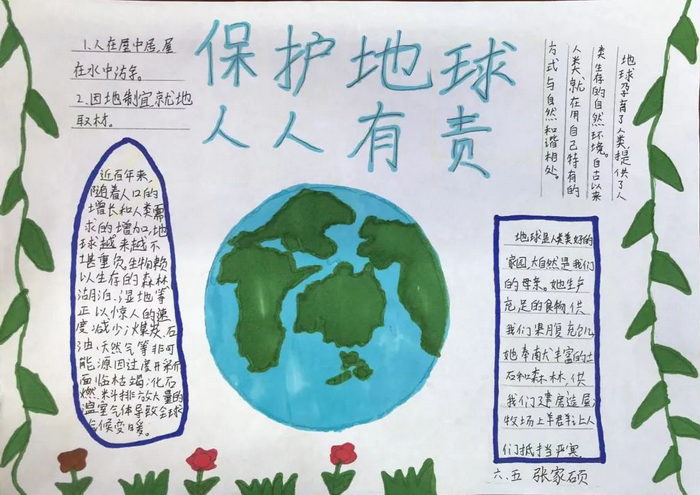 保护地球
人人有责
1.人在屋中居,屋
在水中沽京。
2.因地制宜,就地
取材。
地球孕育了人类,提供了人
类生存的自然环境。自古以来
人类就在用自己特有的
方式与自然和谐相处。
近百年来,
随着人口的
增长和人类需
求的增加,地
球越来越不
堪重负,生物赖
以生存的森林
湖泊、湿地等
正以惊人的速
度减少;煤炭、石
油、天然气等非可
能源因过度开采
面临枯竭;化石
燃料排放大量的
温室气体导致全球
气候变暖。
地球是人类美好的
家园,大自然是我们
的母亲。她生产
充足的食物,供
我们果腹充饥
她奉献丰富的土
石和森林,供
我们建房造屋
牧场上羊群让人
们抵挡严寒
六.五 张家硕